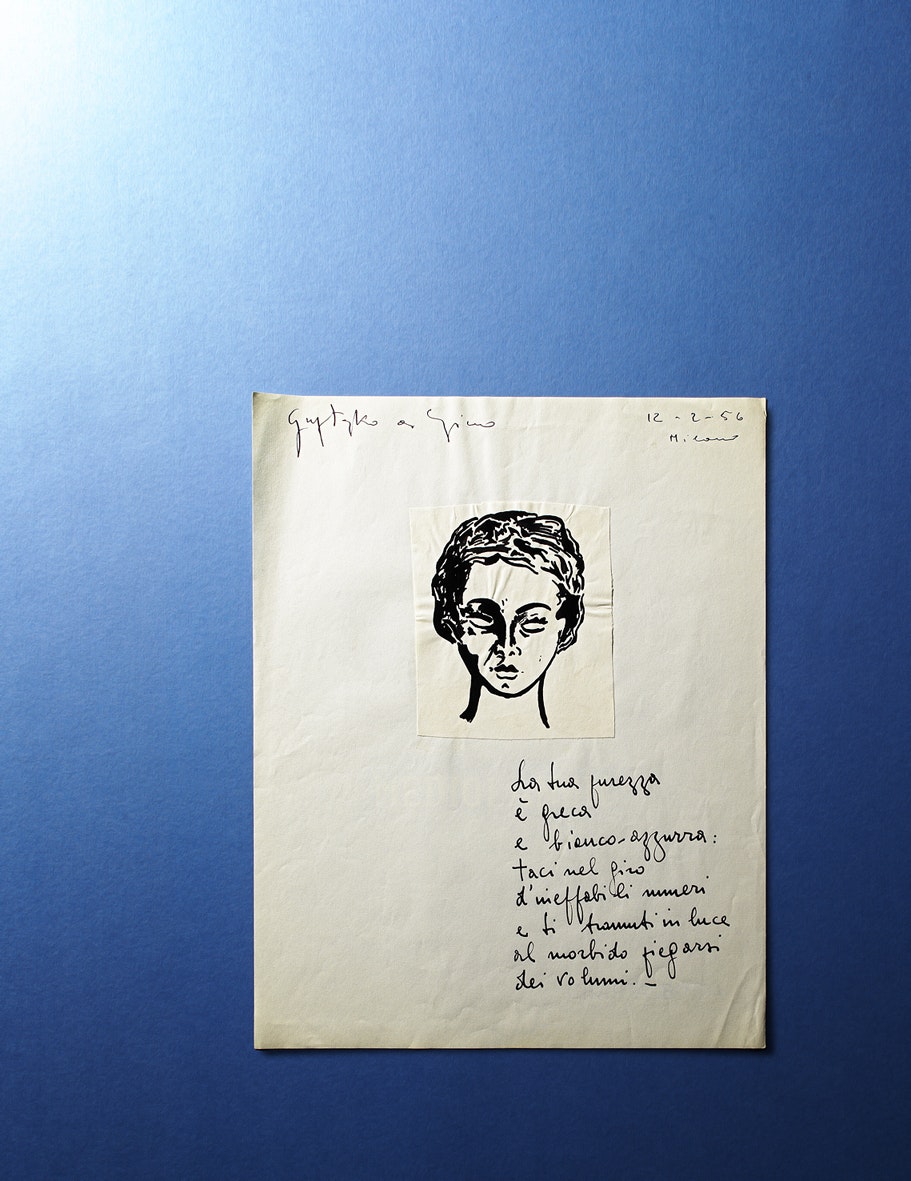 a Gino
12 - 2 - 56
Milano
La tua purezza
è greca
e bianco-azzurra:
taci nel giro
d'ineffabili numeri
e ti tramuti in luce
al morbido piegarsi
dei volumi. –